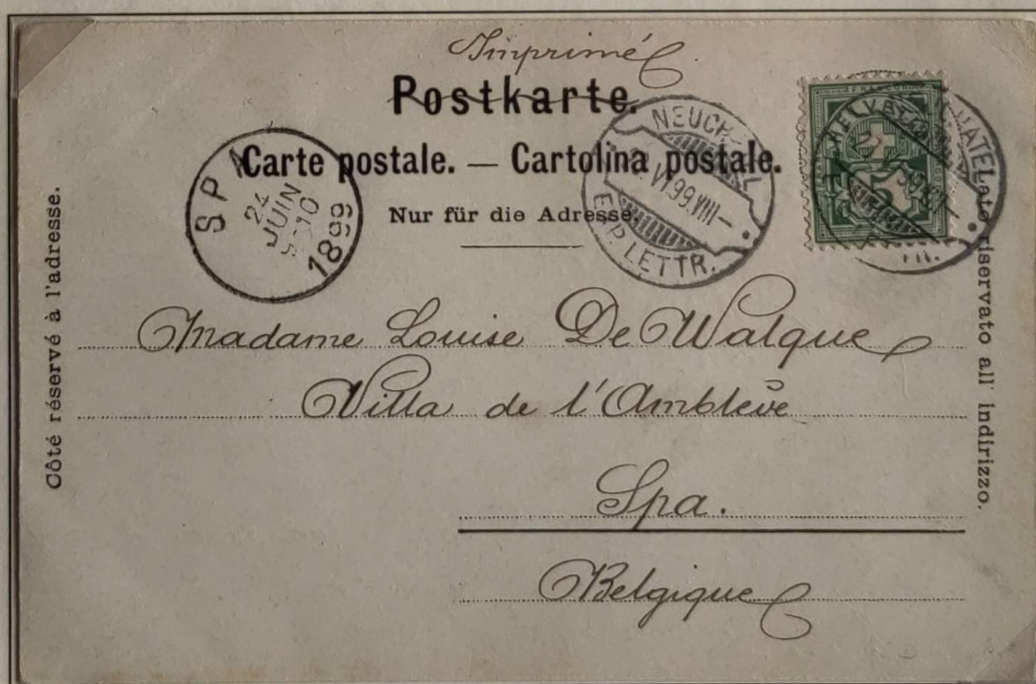 Imprimé
Postkarte.
Carte postale. — Cartolina postale.
Nur für die Adresse.
SPA
24
JUIN
10
1899
NEUCH
VI.99.VIII—
EXP. LETTR.
HELVETIA
5
Côté réservé à l'adresse.
Lato riservato all' indirizzo.
Madame Louise De Walque
Villa de l'Amblève
Spa.
Belgique